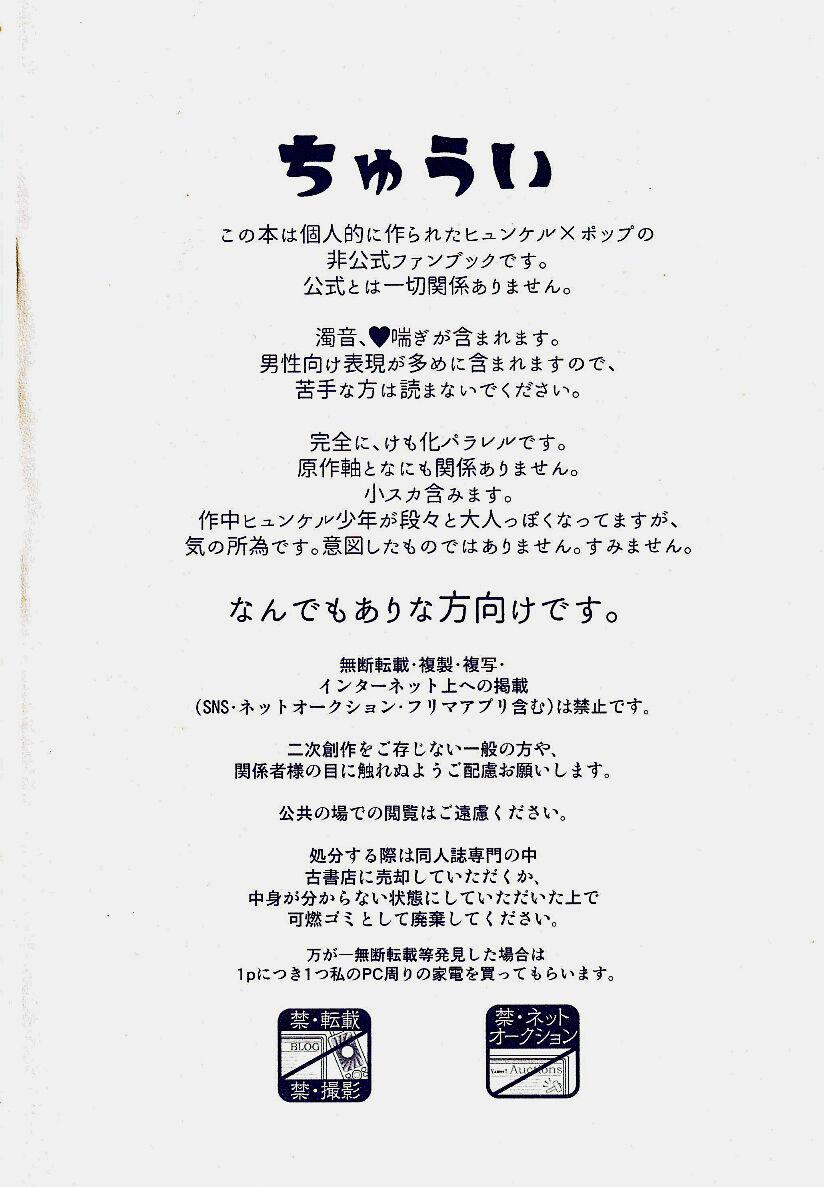 ちゅうい
この本は個人的に作られたヒュンケル×ポップの
非公式ファンブックです。
公式とは一切関係ありません。
濁音、♥喘ぎが含まれます。
男性向け表現が多めに含まれますので、
苦手な方は読まないでください。
完全に、けも化パラレルです。
原作軸となにも関係ありません。
小スカ含みます。
作中ヒュンケル少年が段々と大人っぽくなってますが、
気の所為です。意図したものではありません。すみません。
なんでもありな方向けです。
無断転載・複製・複写・
インターネット上への掲載
(SNS・ネットオークション・フリマアプリ含む)は禁止です。
二次創作をご存じない一般の方や、
関係者様の目に触れぬようご配慮お願いします。
公共の場での閲覧はご遠慮ください。
処分する際は同人誌専門の中
古書店に売却していただくか、
中身が分からない状態にしていただいた上で
可燃ゴミとして廃棄してください。
万が一無断転載等発見した場合は
1pにつき1つ私のPC周りの家電を買ってもらいます。
禁・転載
BLOG
禁・撮影
禁・ネット
オークション
Auctions